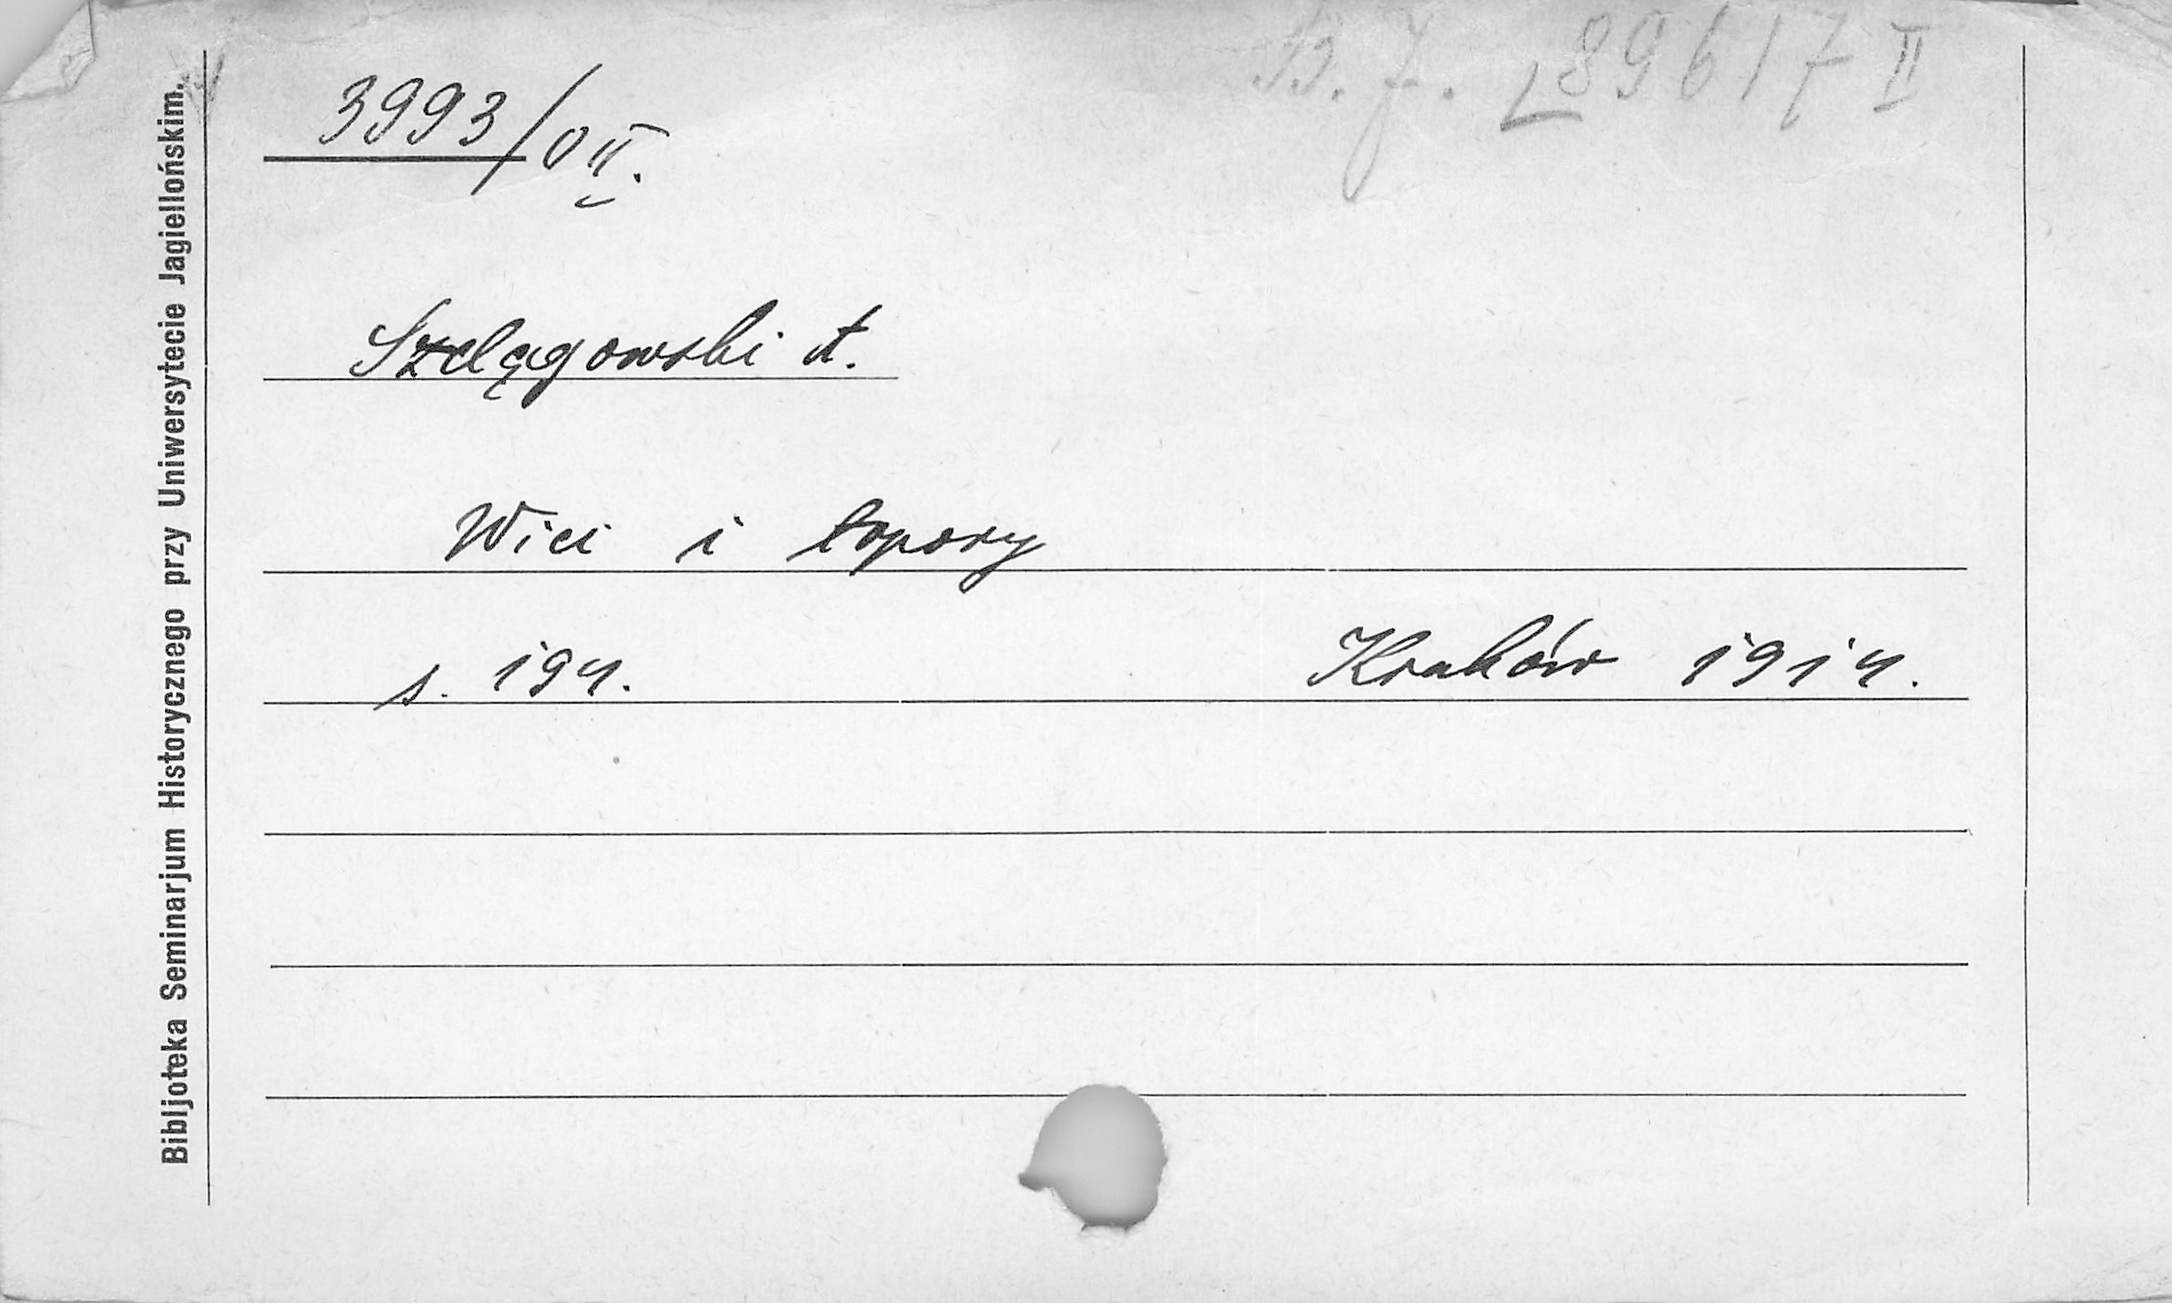 B. J. 89617 II
3993/O II.
Szelągowski A.
Wici i topory
s. 194.
Kraków 1914.
Bibljoteka Seminarjum Historycznego przy Uniwersytecie Jagiellońskim.